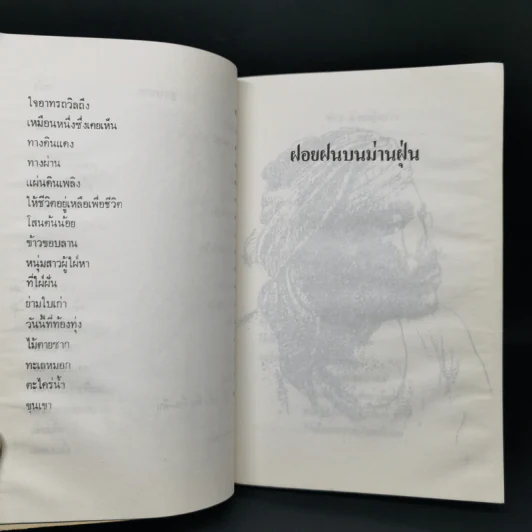 ใจอาทรถวิลถึง
เหมือนหนึ่งซึ่งเคยเห็น
ทางดินแดง
ทางผ่าน
แผ่นดินเพลิง
ให้ชีวิตอยู่เหลือเพื่อชีวิต
โสนต้นน้อย
ข้าวขอบลาน
หนุ่มสาวผู้ไผ่หา
ที่ใฝ่ฝัน
ย่ามใบเก่า
วันนี้ที่ท้องทุ่ง
ไม้ตายซาก
ทะเลหมอก
ตะไคร่น้ำ
ขุนเขา
ฝอยฝนบนม่านฝุ่น